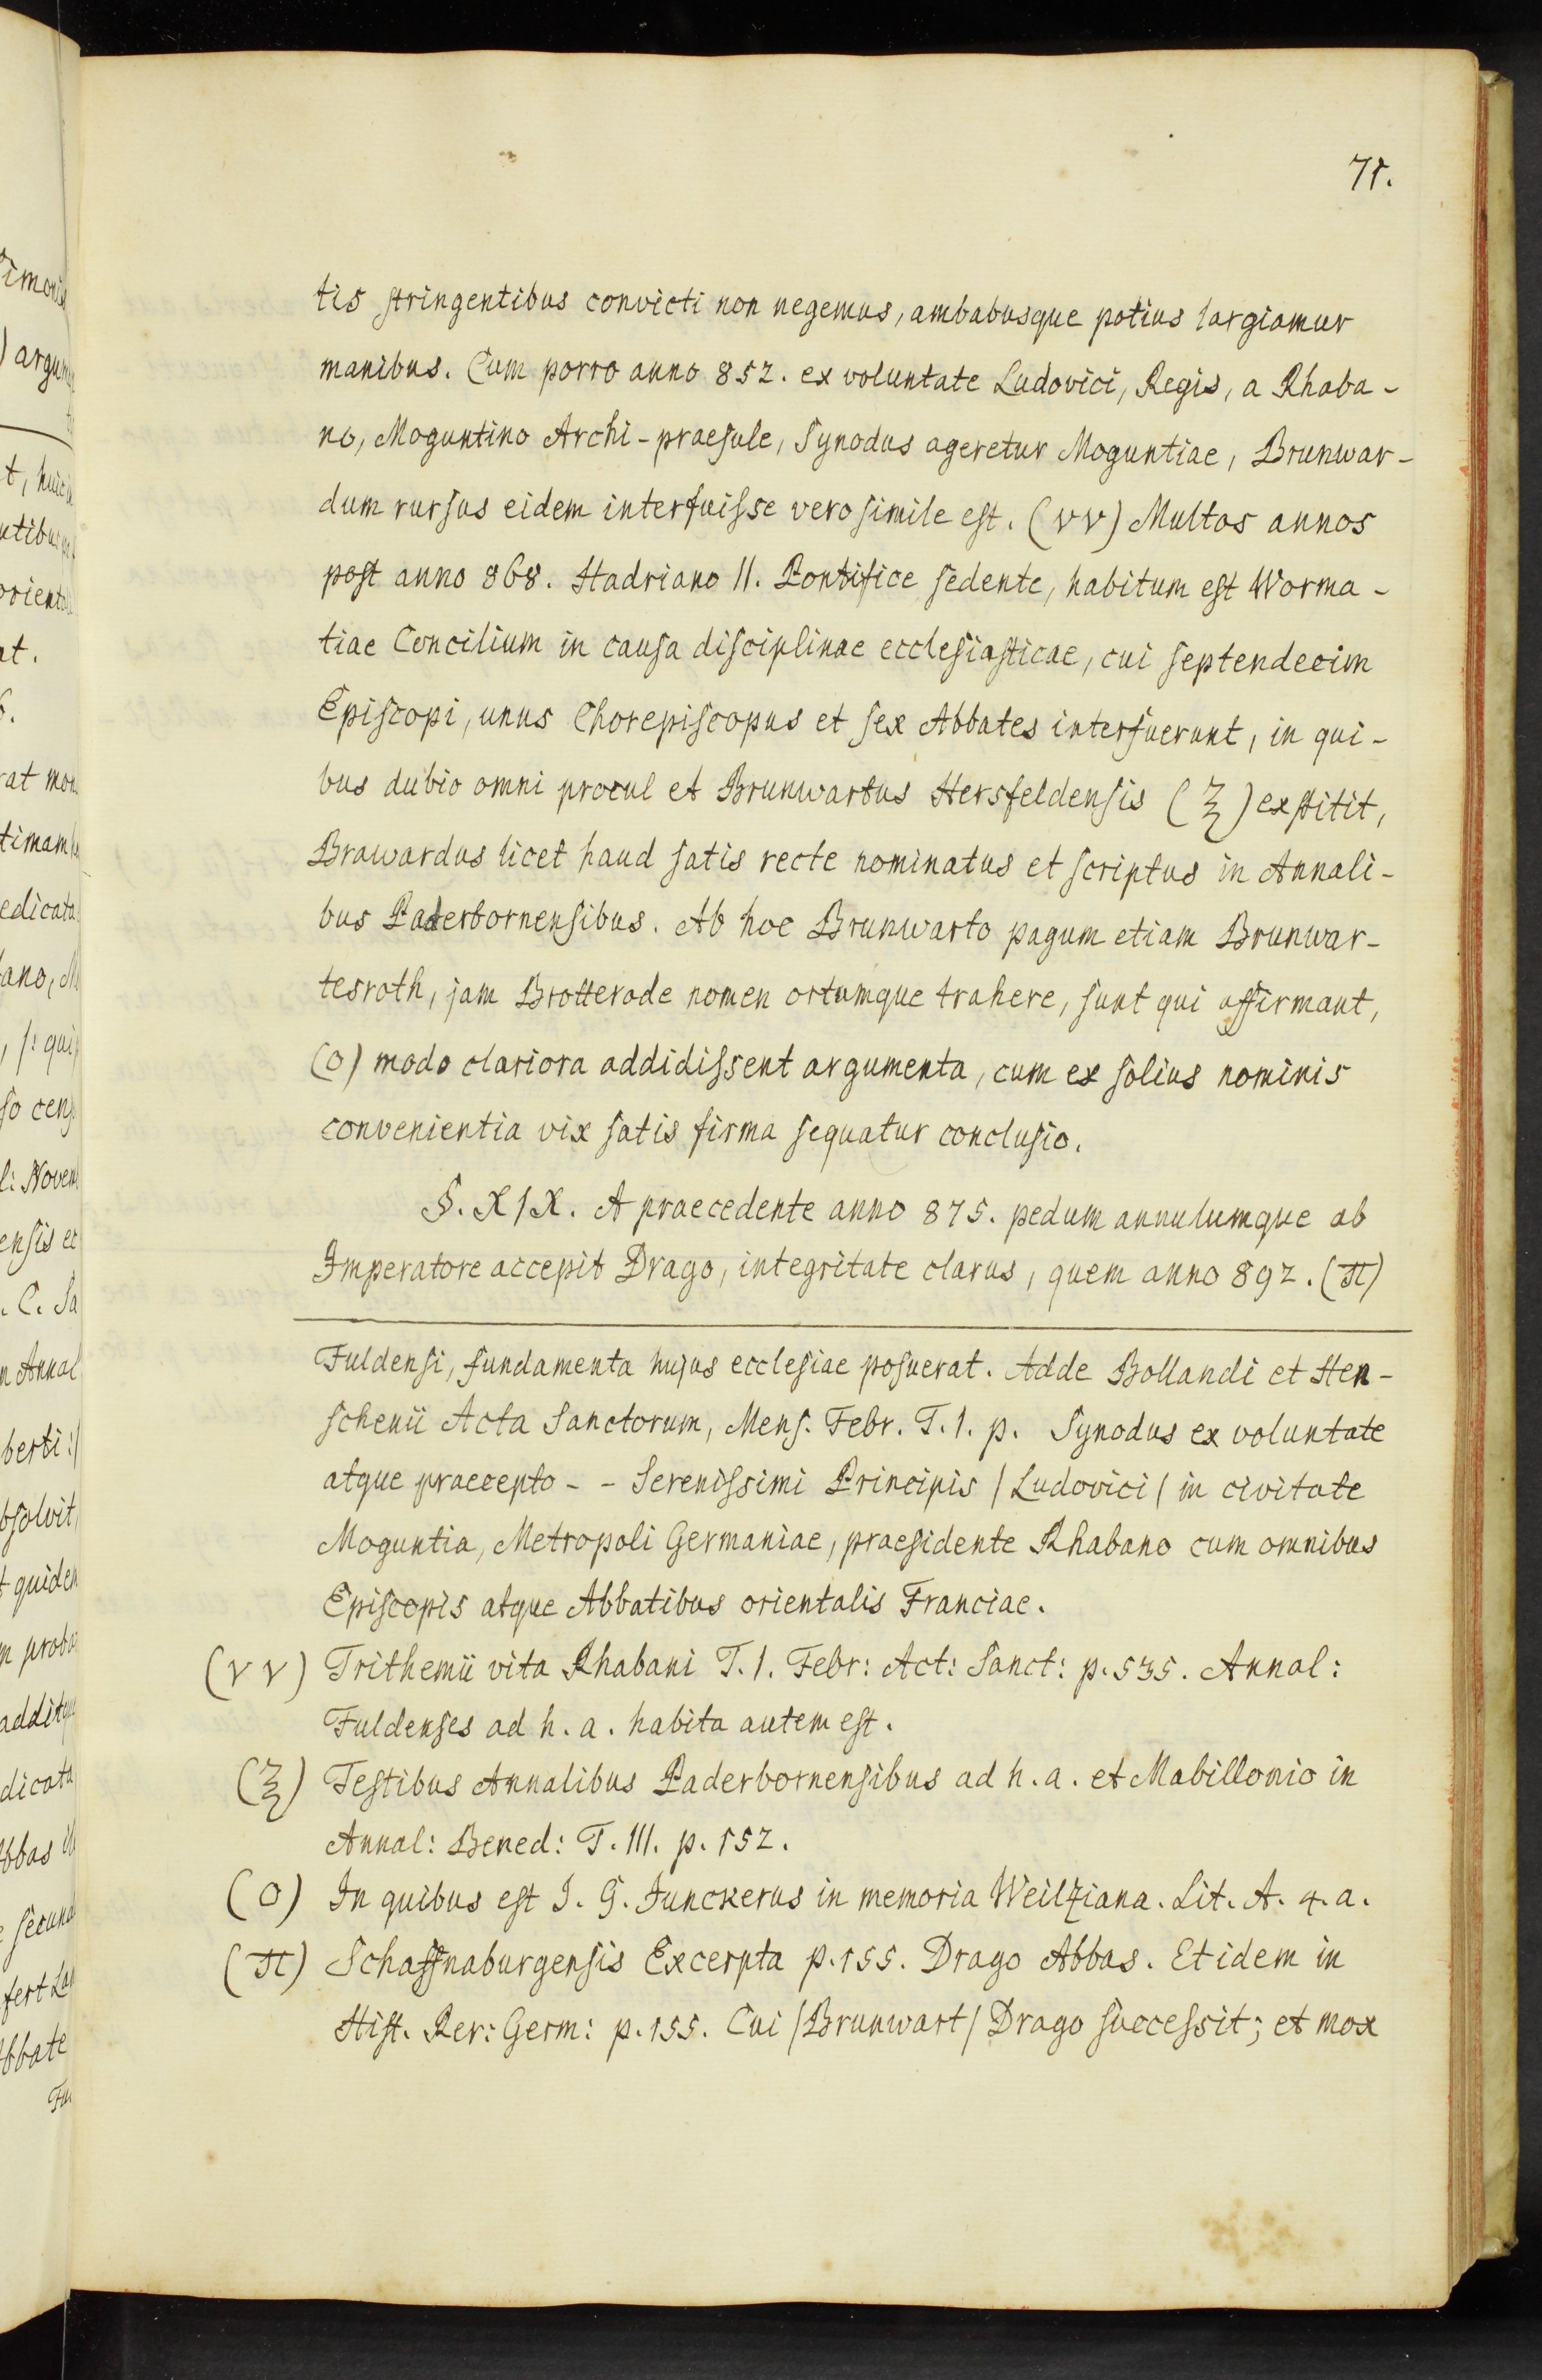 71.
tis stringentibus convicti non negemus, ambabusque potius largiamur
manibus. Cum porro anno 852. ex voluntate Ludovici, Regis, a Rhaba-
no, Moguntino Archi-praesule, Synodus ageretur Moguntiae, Brunwar-
dum rursus eidem interfuisse verosimile est. (νν) Multos annos
post anno 868. Hadriano II. Pontifice sedente, habitum est Worma-
tiae Concilium in causa disciplinae ecclesiasticae, cui septendecim
Episcopi, unus Chorepiscopus et sex Abbates interfuerunt, in qui-
bus dubio omni procul et Brunwartus Hersfeldensis (ξ) exstitit,
Brawardus licet haud satis recte nominatus et scriptus in Annali-
bus Paderbornensibus. Ab hoc Brunwarto pagum etiam Brunwar-
tesroth, jam Brotterode nomen ortumque trahere, sunt qui affirmant,
(ο) modo clariora addidissent argumenta, cum ex solius nominis
convenientia vix satis firma sequatur conclusio.
§. XIX. A praecedente anno 875. pedum annulumque ab
Imperatore accepit Drago, integritate clarus, quem anno 892. (π)
Fuldensi, fundamenta hujus ecclesiae posuerat. Adde Bollandi et Hen-
schenii Acta Sanctorum, Mens. Febr. T. 1. p. Synodus ex voluntate
atque praecepto - - Serenissimi Principis / Ludovici / in civitate
Moguntia, Metropoli Germaniae, praesidente Rhabano cum omnibus
Episcopis atque Abbatibus orientalis Franciae.
(νν) Trithemii vita Rhabani T. 1. Febr: Act: Sanct: p. 535. Annal:
Fuldenses ad h. a. habita autem est.
(ξ) Testibus Annalibus Paderbornensibus ad h. a. et Mabillonio in
Annal: Bened: T. III. p. 152.
(ο) In quibus est I. G. Junckerus in memoria Weilziana. Lit. A. 4. a.
(π) Schaffnaburgensis Excerpta p. 155. Drago Abbas. Et idem in
Hist. Rer: Germ: p. 155. Cui / Brunwart / Drago successit; et mox